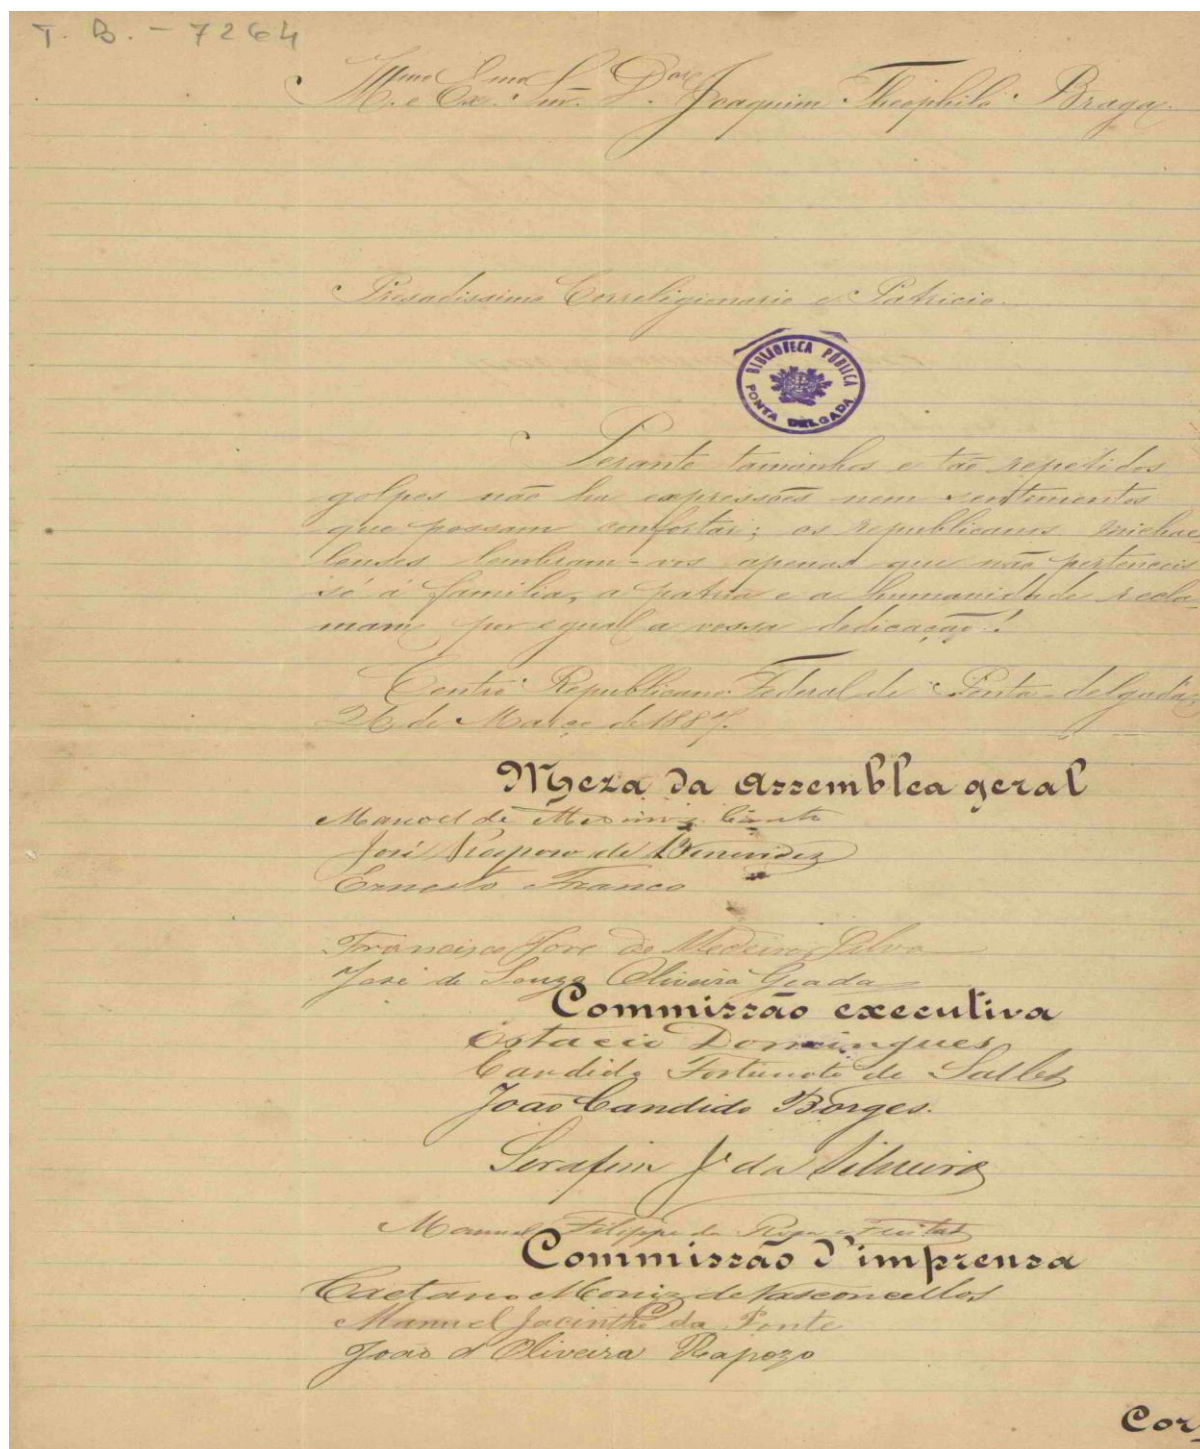 T. B. - 7264
Illmo e Exmo Snr. Dor Joaquim Theophilo Braga.
Presadissimo Correligionario e Patricio.
BIBLIOTECA PÚBLICA
PONTA DELGADA
Perante tamanhos e tão repetidos
golpes não ha expressões nem sentimentos
que possam confortar; os republicanos michae
lenses lembram-vos apenas que não pertenceis
só á familia, a patria e a humanidade recla
mam por egual a vossa dedicação!
Centro Republicano Federal de Ponta-delgada,
26 de Março de 1887.
Meza da Assemblea geral
Manoel de
José Raposo de
Ernesto Franco
Francisco Jose de Medeiros Silva
José de Souza Oliveira Geada
Commissão executiva
Estacio Domingues
Candido Fortunato de Salles
João Candido Borges.
Serafim J. da Silveira
Manuel Filippe da Freitas
Commissão d'imprensa
Caetano Moniz de Vasconcellos
Manuel Jacintho da Ponte
João d'Oliveira Rapozo
Cor